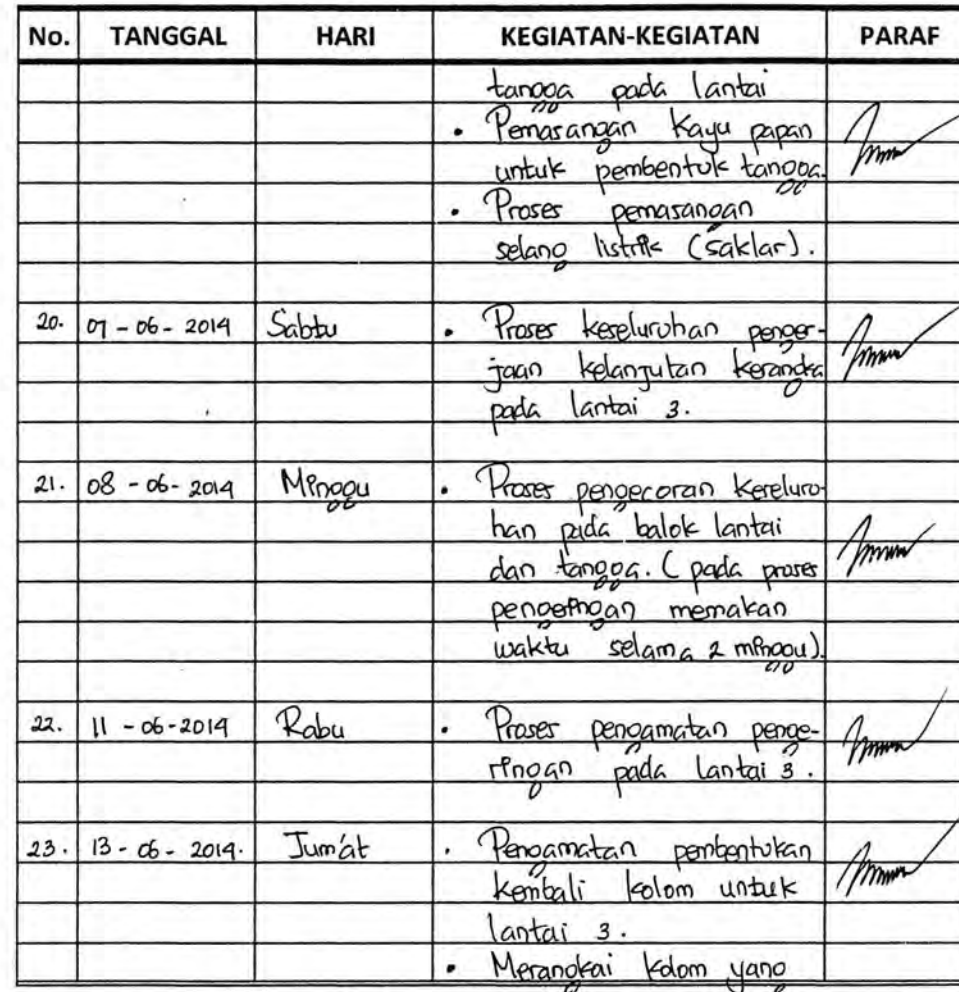 No. TANGGAL HARI KEGIATAN-KEGIATAN PARAF
tangga pada lantai
• Pemasangan Kayu papan
untuk pembentuk tangga.
• Proses pemasangan
selang listrik (saklar).
20. 07 - 06 - 2014 Sabtu • Proses keseluruhan penger-
jaan kelanjutan kerangka
pada lantai 3.
21. 08 - 06 - 2014 Minggu • Proses pengecoran keseluru-
han pada balok lantai
dan tangga. (pada proses
pengeringan memakan
waktu selama 2 minggu).
22. 11 - 06 - 2014 Rabu • Proses pengamatan penge-
ringan pada lantai 3.
23. 13 - 06 - 2014. Jum'at • Pengamatan pembentukan
kembali kolom untuk
lantai 3.
• Merangkai kolom yang